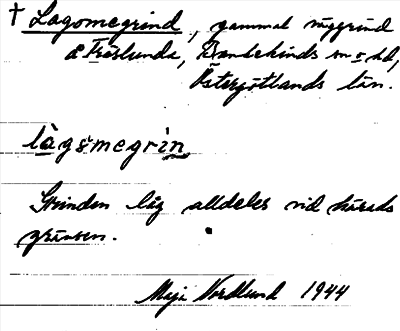 † Lagomegrind, gammal väggrind
å Fräslunda, Bankekinds sn o hd,
Östergötlands län.
làgömegrìn
Grinden låg alldeles vid härads
gränsen.
Maja Nordlund 1944